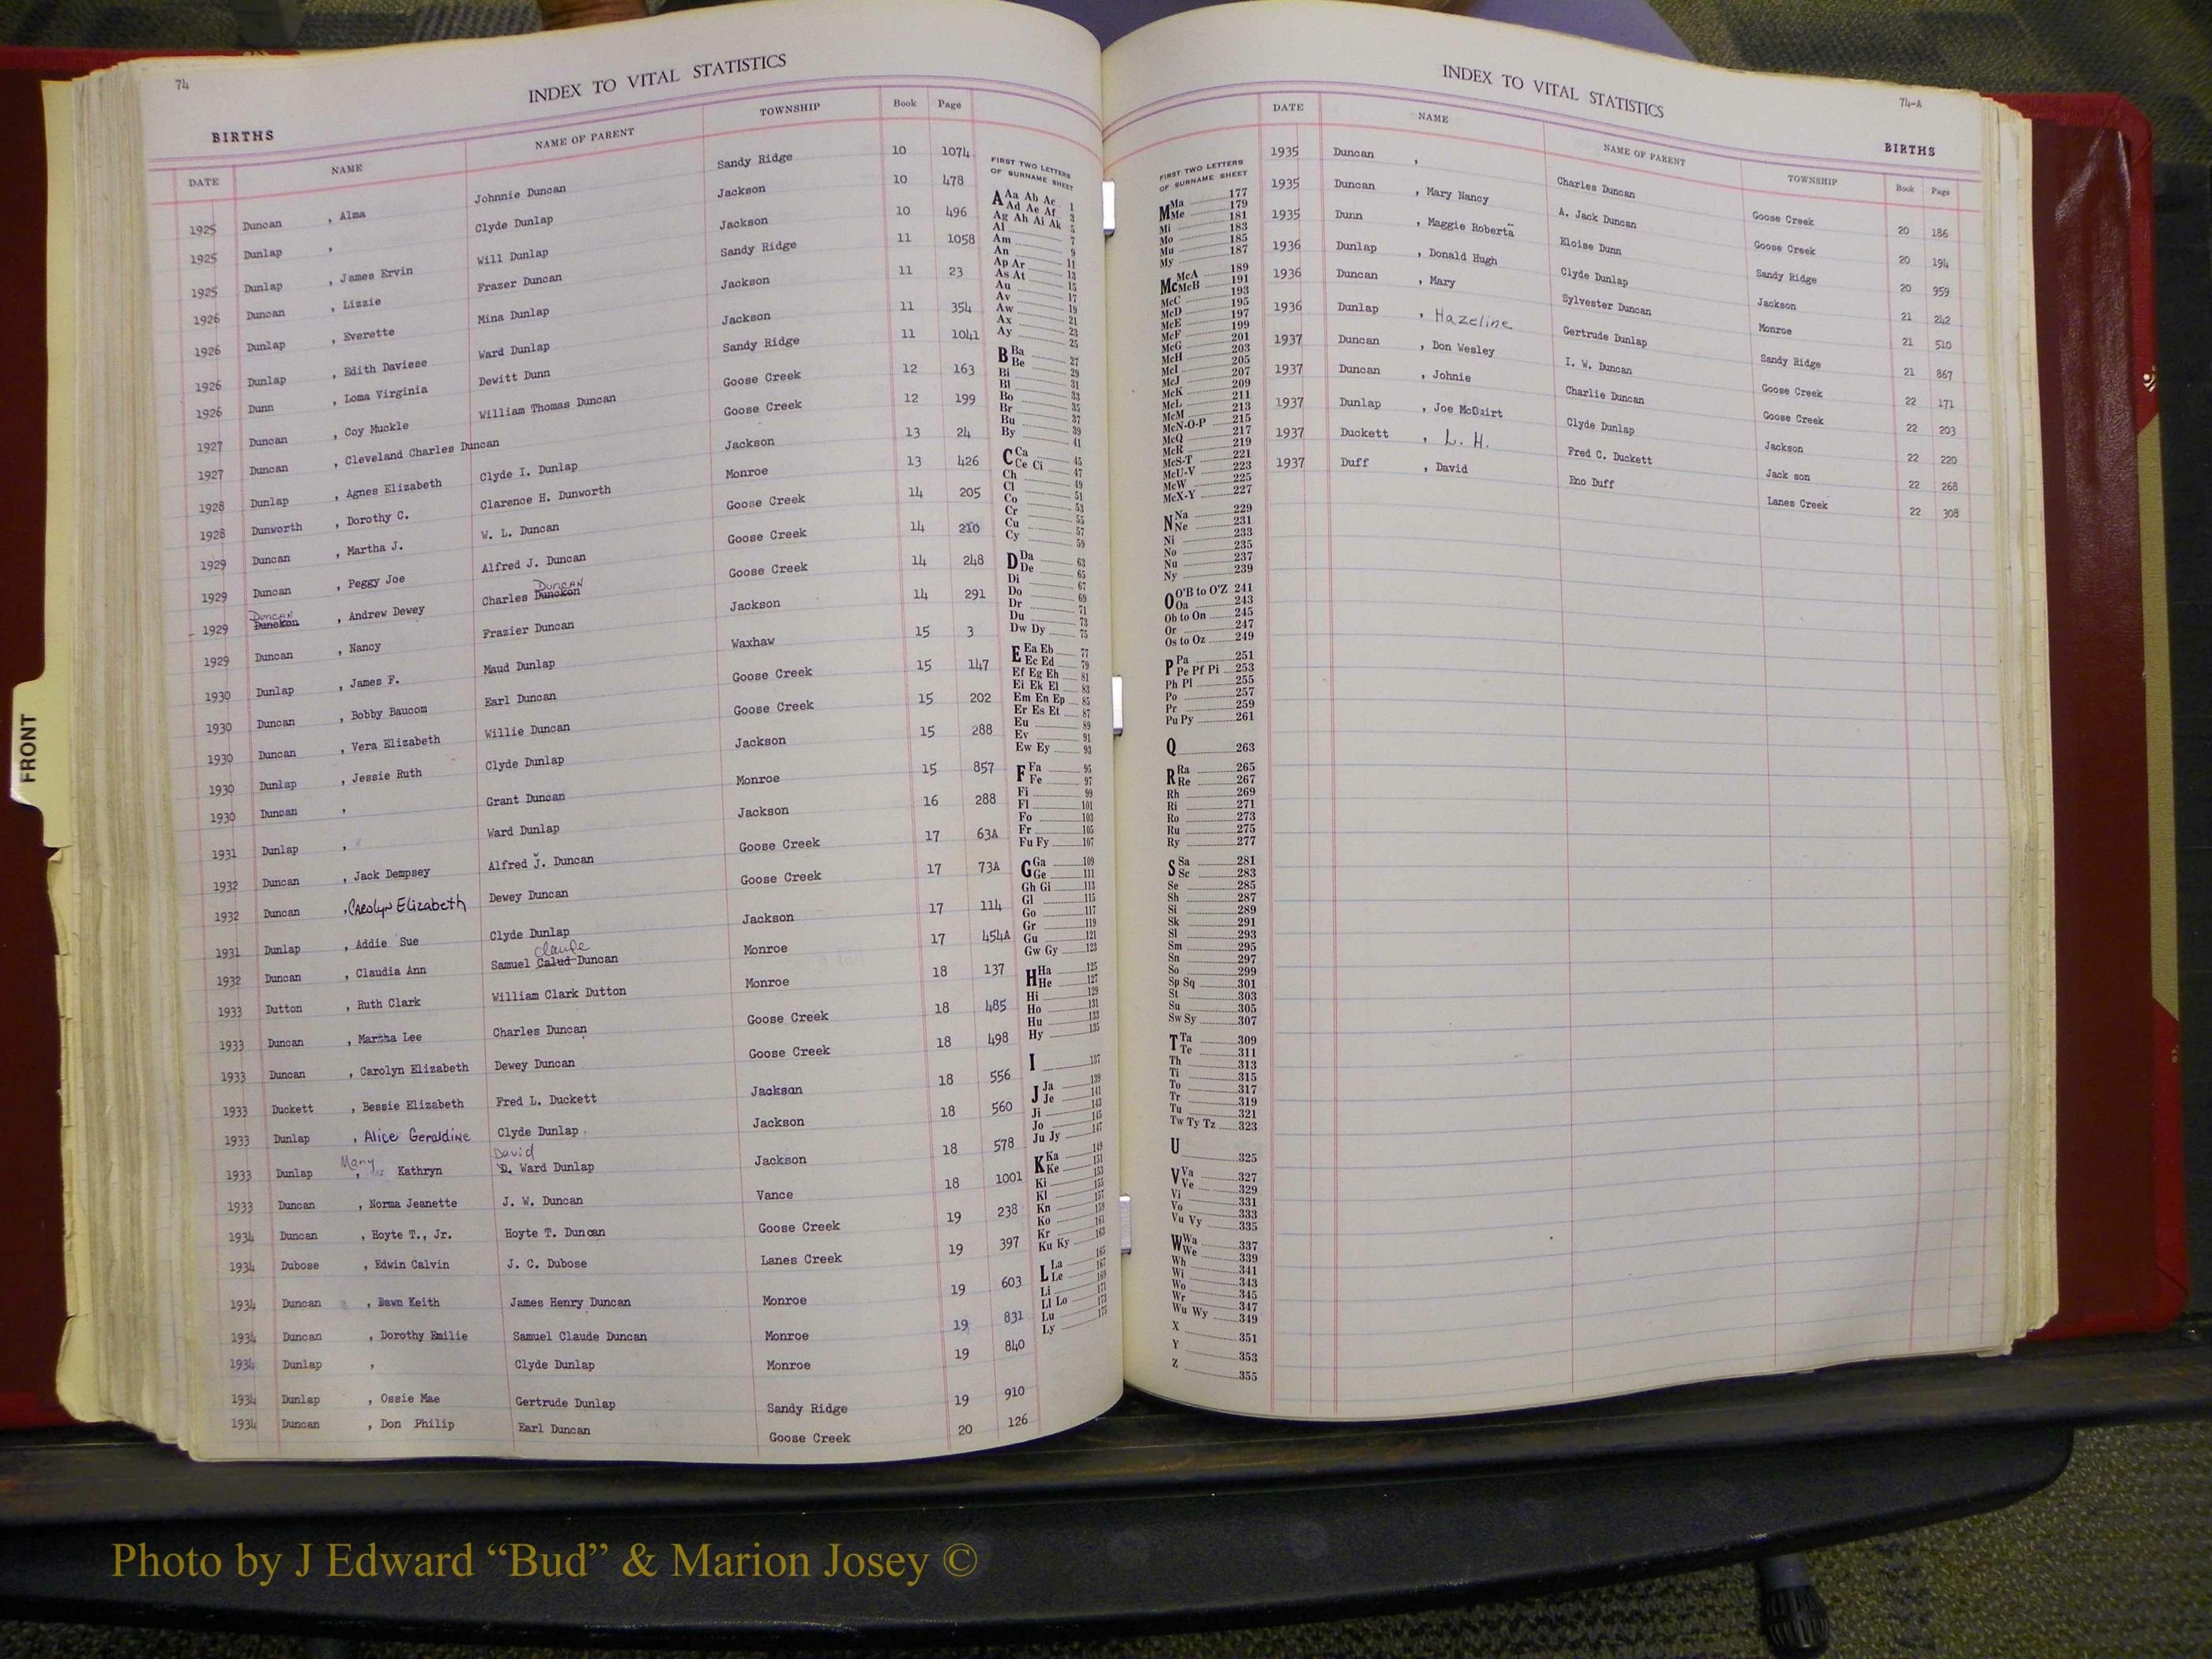 74
INDEX TO VITAL STATISTICS
BIRTHS
DATE NAME NAME OF PARENT TOWNSHIP Book Page
1925 Duncan , Alma Johnnie Duncan Sandy Ridge 10 1074
1925 Dunlap , Clyde Dunlap Jackson 10 478
1925 Dunlap , James Ervin Will Dunlap Jackson 10 496
1926 Duncan , Lizzie Frazer Duncan Sandy Ridge 11 1058
1926 Dunlap , Everette Mina Dunlap Jackson 11 23
1926 Dunlap , Edith Daviese Ward Dunlap Jackson 11 354
1926 Dunn , Loma Virginia Dewitt Dunn Sandy Ridge 11 1041
1927 Duncan , Coy Muckle William Thomas Duncan Goose Creek 12 163
1927 Duncan , Cleveland Charles Duncan Goose Creek 12 199
1928 Dunlap , Agnes Elizabeth Clyde I. Dunlap Jackson 13 24
1928 Dunworth , Dorothy C. Clarence H. Dunworth Monroe 13 426
1929 Duncan , Martha J. W. L. Duncan Goose Creek 14 205
1929 Duncan , Peggy Joe Alfred J. Duncan Goose Creek 14 210
Duncan Duncan
1929 Dunckon , Andrew Dewey Charles Dunckon Goose Creek 14 248
1929 Duncan , Nancy Frazier Duncan Jackson 14 291
1930 Dunlap , James F. Maud Dunlap Waxhaw 15 3
1930 Duncan , Bobby Baucom Earl Duncan Goose Creek 15 147
1930 Duncan , Vera Elizabeth Willie Duncan Goose Creek 15 202
1930 Dunlap , Jessie Ruth Clyde Dunlap Jackson 15 288
1930 Duncan , Grant Duncan Monroe 15 857
1931 Dunlap , Ward Dunlap Jackson 16 288
1932 Duncan , Jack Dempsey Alfred J. Duncan Goose Creek 17 63A
1932 Duncan , Carolyn Elizabeth Dewey Duncan Goose Creek 17 73A
1931 Dunlap , Addie Sue Clyde Dunlap Jackson 17 114
Claude
1932 Duncan , Claudia Ann Samuel Calud Duncan Monroe 17 454A
1933 Dutton , Ruth Clark William Clark Dutton Monroe 18 137
1933 Duncan , Martha Lee Charles Duncan Goose Creek 18 485
1933 Duncan , Carolyn Elizabeth Dewey Duncan Goose Creek 18 498
1933 Duckett , Bessie Elizabeth Fred L. Duckett Jackson 18 556
1933 Dunlap , Alice Geraldine Clyde Dunlap Jackson 18 560
Mary David
1933 Dunlap , Kathryn D. Ward Dunlap Jackson 18 578
1933 Duncan , Norma Jeanette J. W. Duncan Vance 18 1001
1934 Duncan , Hoyte T., Jr. Hoyte T. Duncan Goose Creek 19 238
1934 Dubose , Edwin Calvin J. C. Dubose Lanes Creek 19 397
1934 Duncan , Dawn Keith James Henry Duncan Monroe 19 603
1934 Duncan , Dorothy Emilie Samuel Claude Duncan Monroe 19 831
1934 Dunlap , Clyde Dunlap Monroe 19 840
1934 Dunlap , Ossie Mae Gertrude Dunlap Sandy Ridge 19 910
1934 Duncan , Don Philip Earl Duncan Goose Creek 20 126
FIRST TWO LETTERS
OF SURNAME SHEET
A Aa Ab Ac 1
Ad Ae Af 3
Ag Ah Ai Ak 5
Al 7
Am 9
An 11
Ap Ar 13
As At 15
Au 17
Av 19
Aw 21
Ax 23
Ay 25
B Ba 27
Be 29
Bi 31
Bl 33
Bo 35
Br 37
Bu 39
By 41
C Ca 45
Ce Ci 47
Ch 49
Cl 51
Co 53
Cr 55
Cu 57
Cy 59
D Da 63
De 65
Di 67
Do 69
Dr 71
Du 73
Dw Dy 75
E Ea Eb 77
Ec Ed 79
Ef Eg Eh 81
Ei Ek El 83
Em En Ep 85
Er Es Et 87
Eu 89
Ev 91
Ew Ey 93
F Fa 95
Fe 97
Fi 99
Fl 101
Fo 103
Fr 105
Fu Fy 107
G Ga 109
Ge 111
Gh Gi 113
Gl 115
Go 117
Gr 119
Gu 121
Gw Gy 123
H Ha 125
He 127
Hi 129
Ho 131
Hu 133
Hy 135
I 137
J Ja 139
Je 141
Ji 143
Jo 145
Ju Jy 147
K Ka 149
Ke 151
Ki 153
Kl 155
Kn 157
Ko 159
Kr 161
Ku Ky 163
L La 165
Le 167
Li 169
Ll Lo 171
Lu 173
Ly 175
74-A
INDEX TO VITAL STATISTICS
BIRTHS
DATE NAME NAME OF PARENT TOWNSHIP Book Page
1935 Duncan , Charles Duncan Goose Creek 20 186
1935 Duncan , Mary Nancy A. Jack Duncan Goose Creek 20 194
1935 Dunn , Maggie Roberta Eloise Dunn Sandy Ridge 20 959
1936 Dunlap , Donald Hugh Clyde Dunlap Jackson 21 242
1936 Duncan , Mary Sylvester Duncan Monroe 21 510
1936 Dunlap , Hazeline Gertrude Dunlap Sandy Ridge 21 867
1937 Duncan , Don Wesley I. W. Duncan Goose Creek 22 171
1937 Duncan , Johnie Charlie Duncan Goose Creek 22 203
1937 Dunlap , Joe McGuirt Clyde Dunlap Jackson 22 220
1937 Duckett , L. H. Fred C. Duckett Jack son 22 268
1937 Duff , David Eno Duff Lanes Creek 22 308
FIRST TWO LETTERS
OF SURNAME SHEET
M Ma 177
Me 179
Mi 181
Mo 183
Mu 185
My 187
Mc McA 189
McB 191
McC 193
McD 195
McE 197
McF 199
McG 201
McH 203
McI 205
McJ 207
McK 209
McL 211
McM 213
McN-O-P 215
McQ 217
McR 219
McS-T 221
McU-V 223
McW 225
McX-Y 227
N Na 229
Ne 231
Ni 233
No 235
Nu 237
Ny 239
O O'B to O'Z 241
Oa 243
Ob to On 245
Or 247
Os to Oz 249
P Pa 251
Pe Pf Pi 253
Ph Pl 255
Po 257
Pr 259
Pu Py 261
Q 263
R Ra 265
Re 267
Rh 269
Ri 271
Ro 273
Ru 275
Ry 277
S Sa 281
Sc 283
Se 285
Sh 287
Si 289
Sk 291
Sl 293
Sm 295
Sn 297
So 299
Sp Sq 301
St 303
Su 305
Sw Sy 307
T Ta 309
Te 311
Th 313
Ti 315
To 317
Tr 319
Tu 321
Tw Ty Tz 323
U 325
V Va 327
Ve 329
Vi 331
Vo 333
Vu Vy 335
W Wa 337
We 339
Wh 341
Wi 343
Wo 345
Wr 347
Wu Wy 349
X 351
Y 353
Z 355
FRONT
Photo by J Edward “Bud” & Marion Josey ©